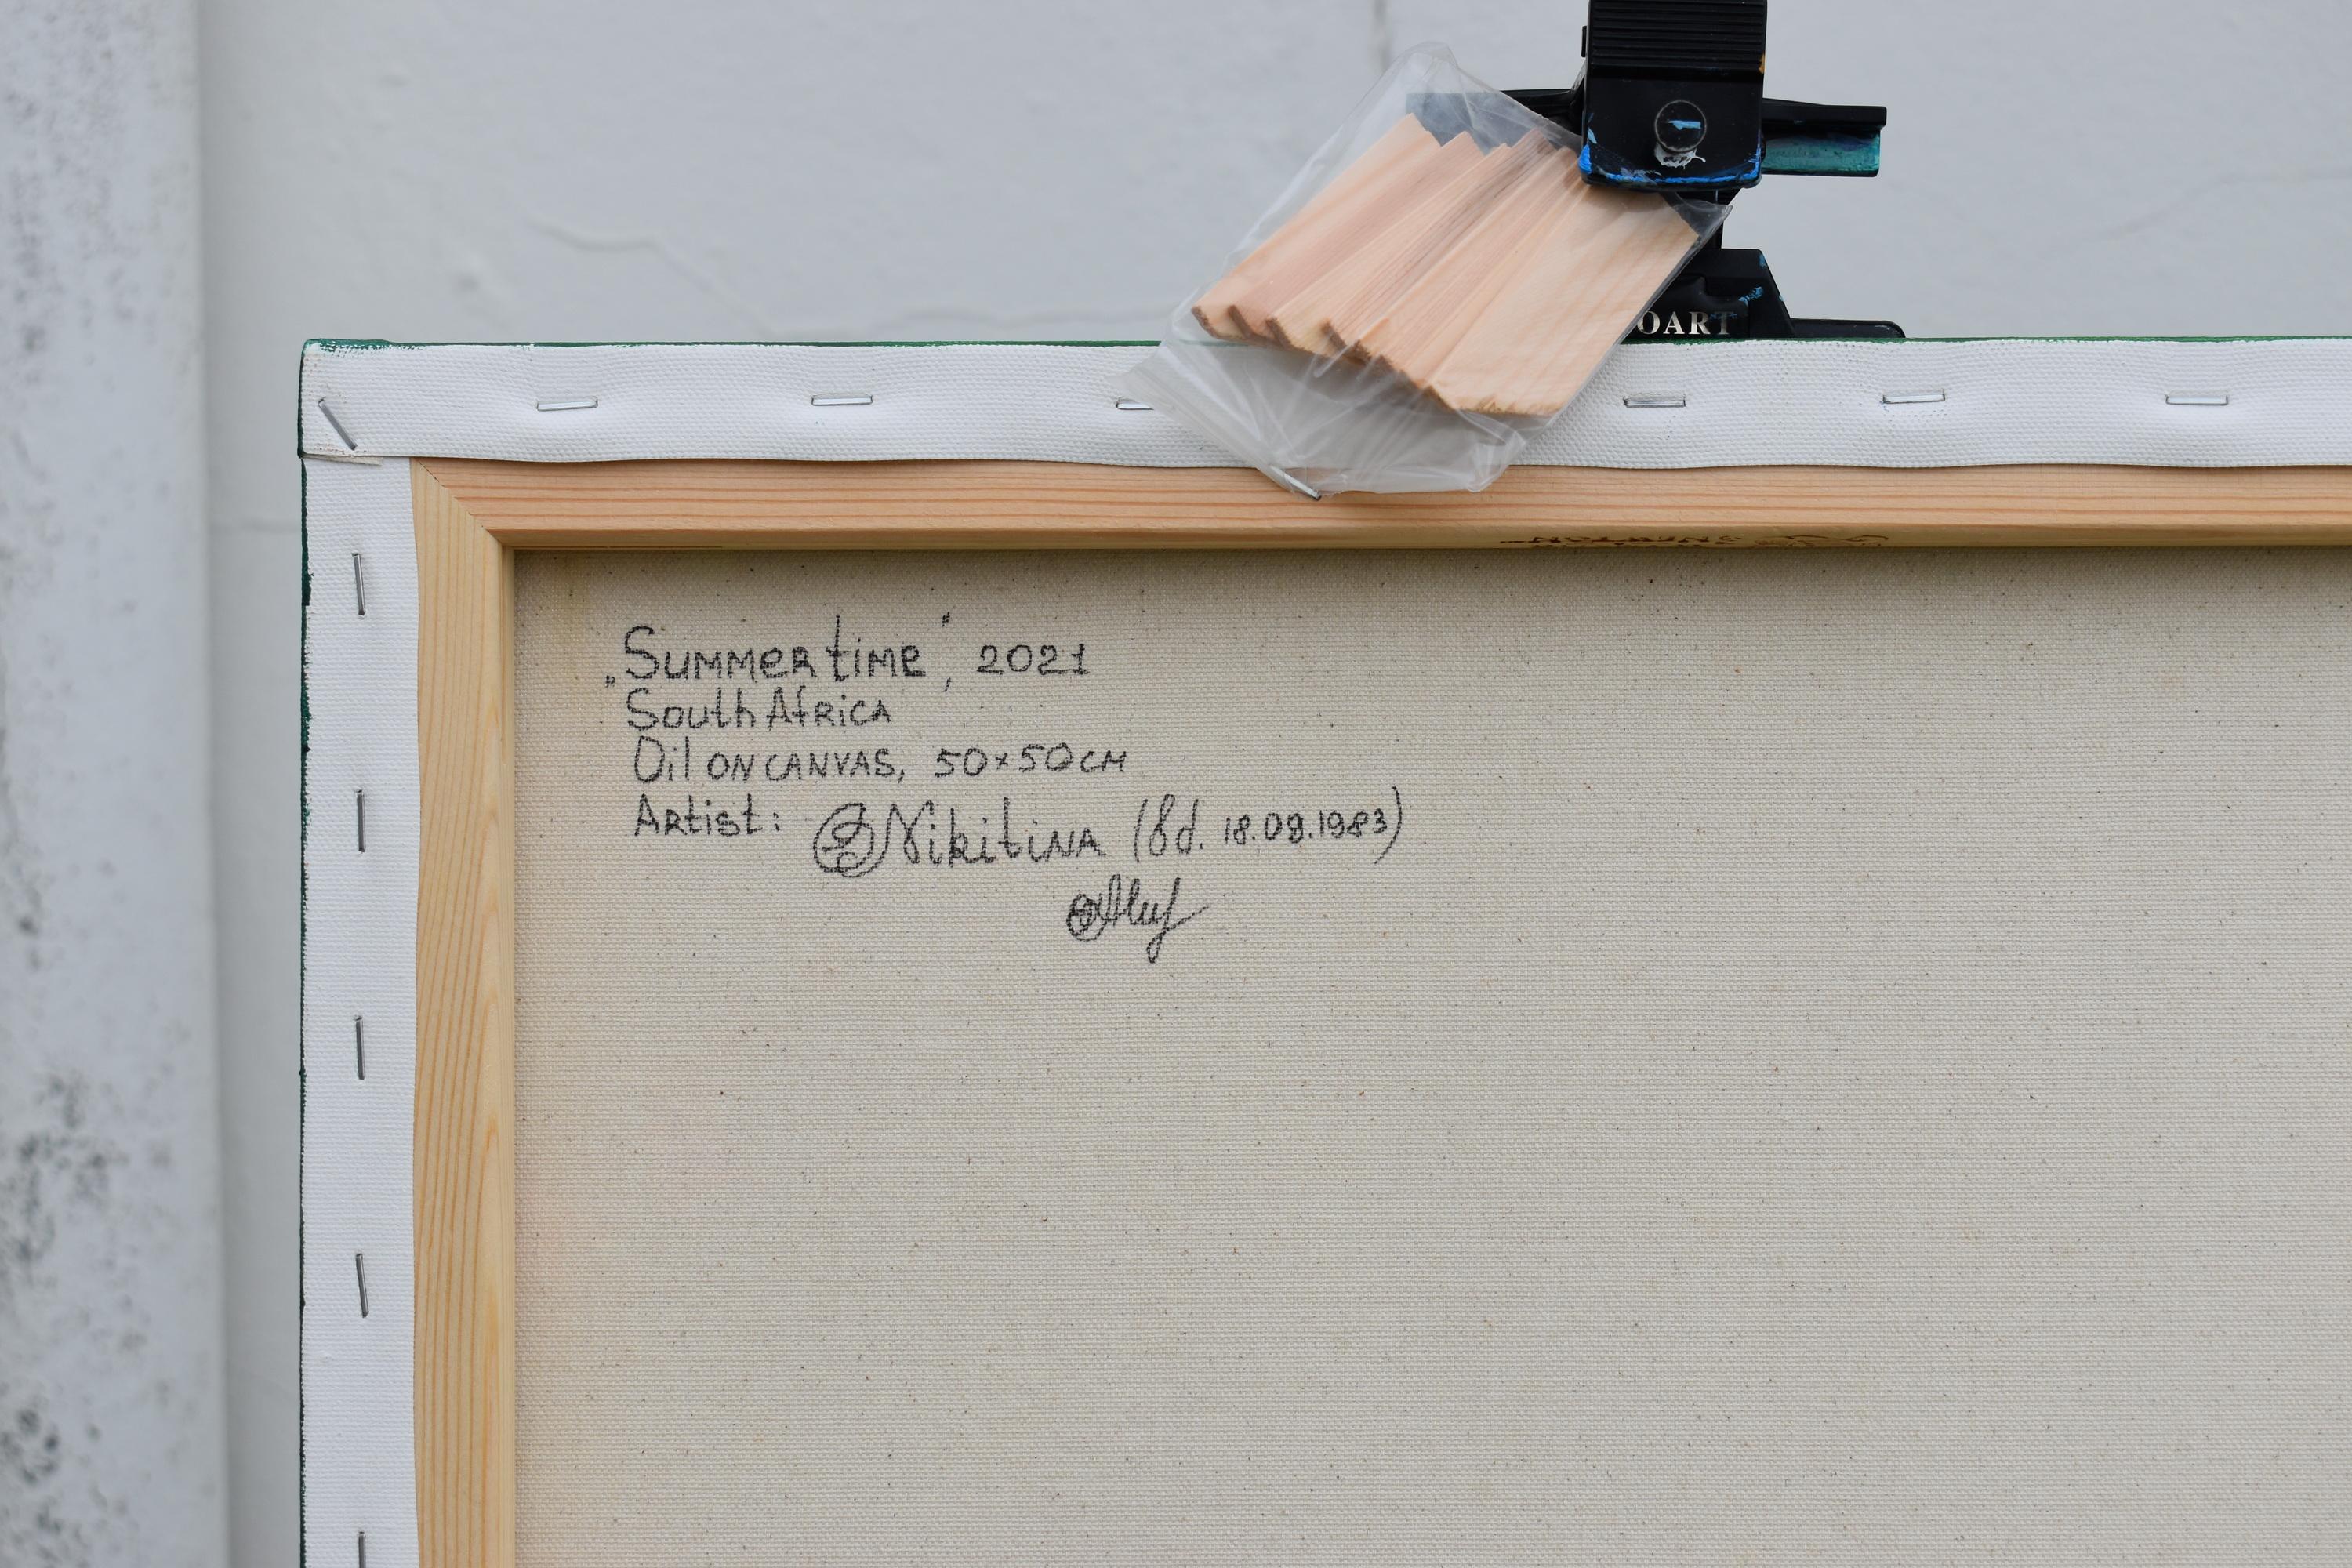 OART
„Summer time", 2021
South Africa
Oil on canvas, 50×50 cm
Artist: Nikitina (bd. 18.09.1983)